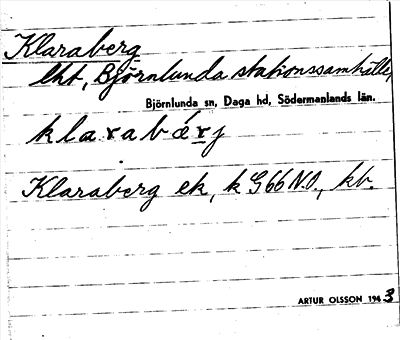 Klaraberg
lht, Björnlunda stationssamhälle,
Björnlunda sn, Daga hd, Södermanlands län.
klarabǽrj
Klaraberg ek, k G66 N.O., kb.
ARTUR OLSSON 1943